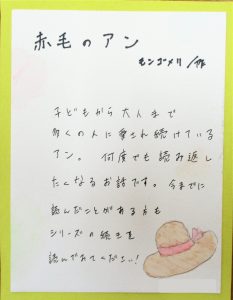 赤毛のアン
モンゴメリ/作
子どもから大人まで
多くの人に愛され続けている
アン。何度でも読み返し
たくなるお話です。今までに
読んだことがある方も
シリーズの続きを
読んでみてください!